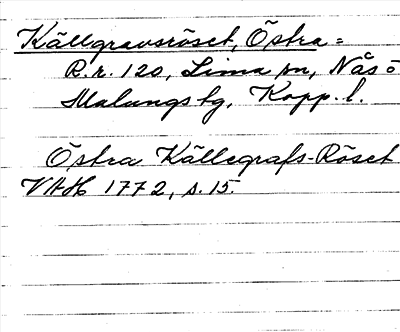 Källgravsröset, Östra =
R.r. 120, Lima sn, Nås o
Malungs tg, Kopp. l.
Östra Källegrafs-Röset
VAH 1772, s. 15.